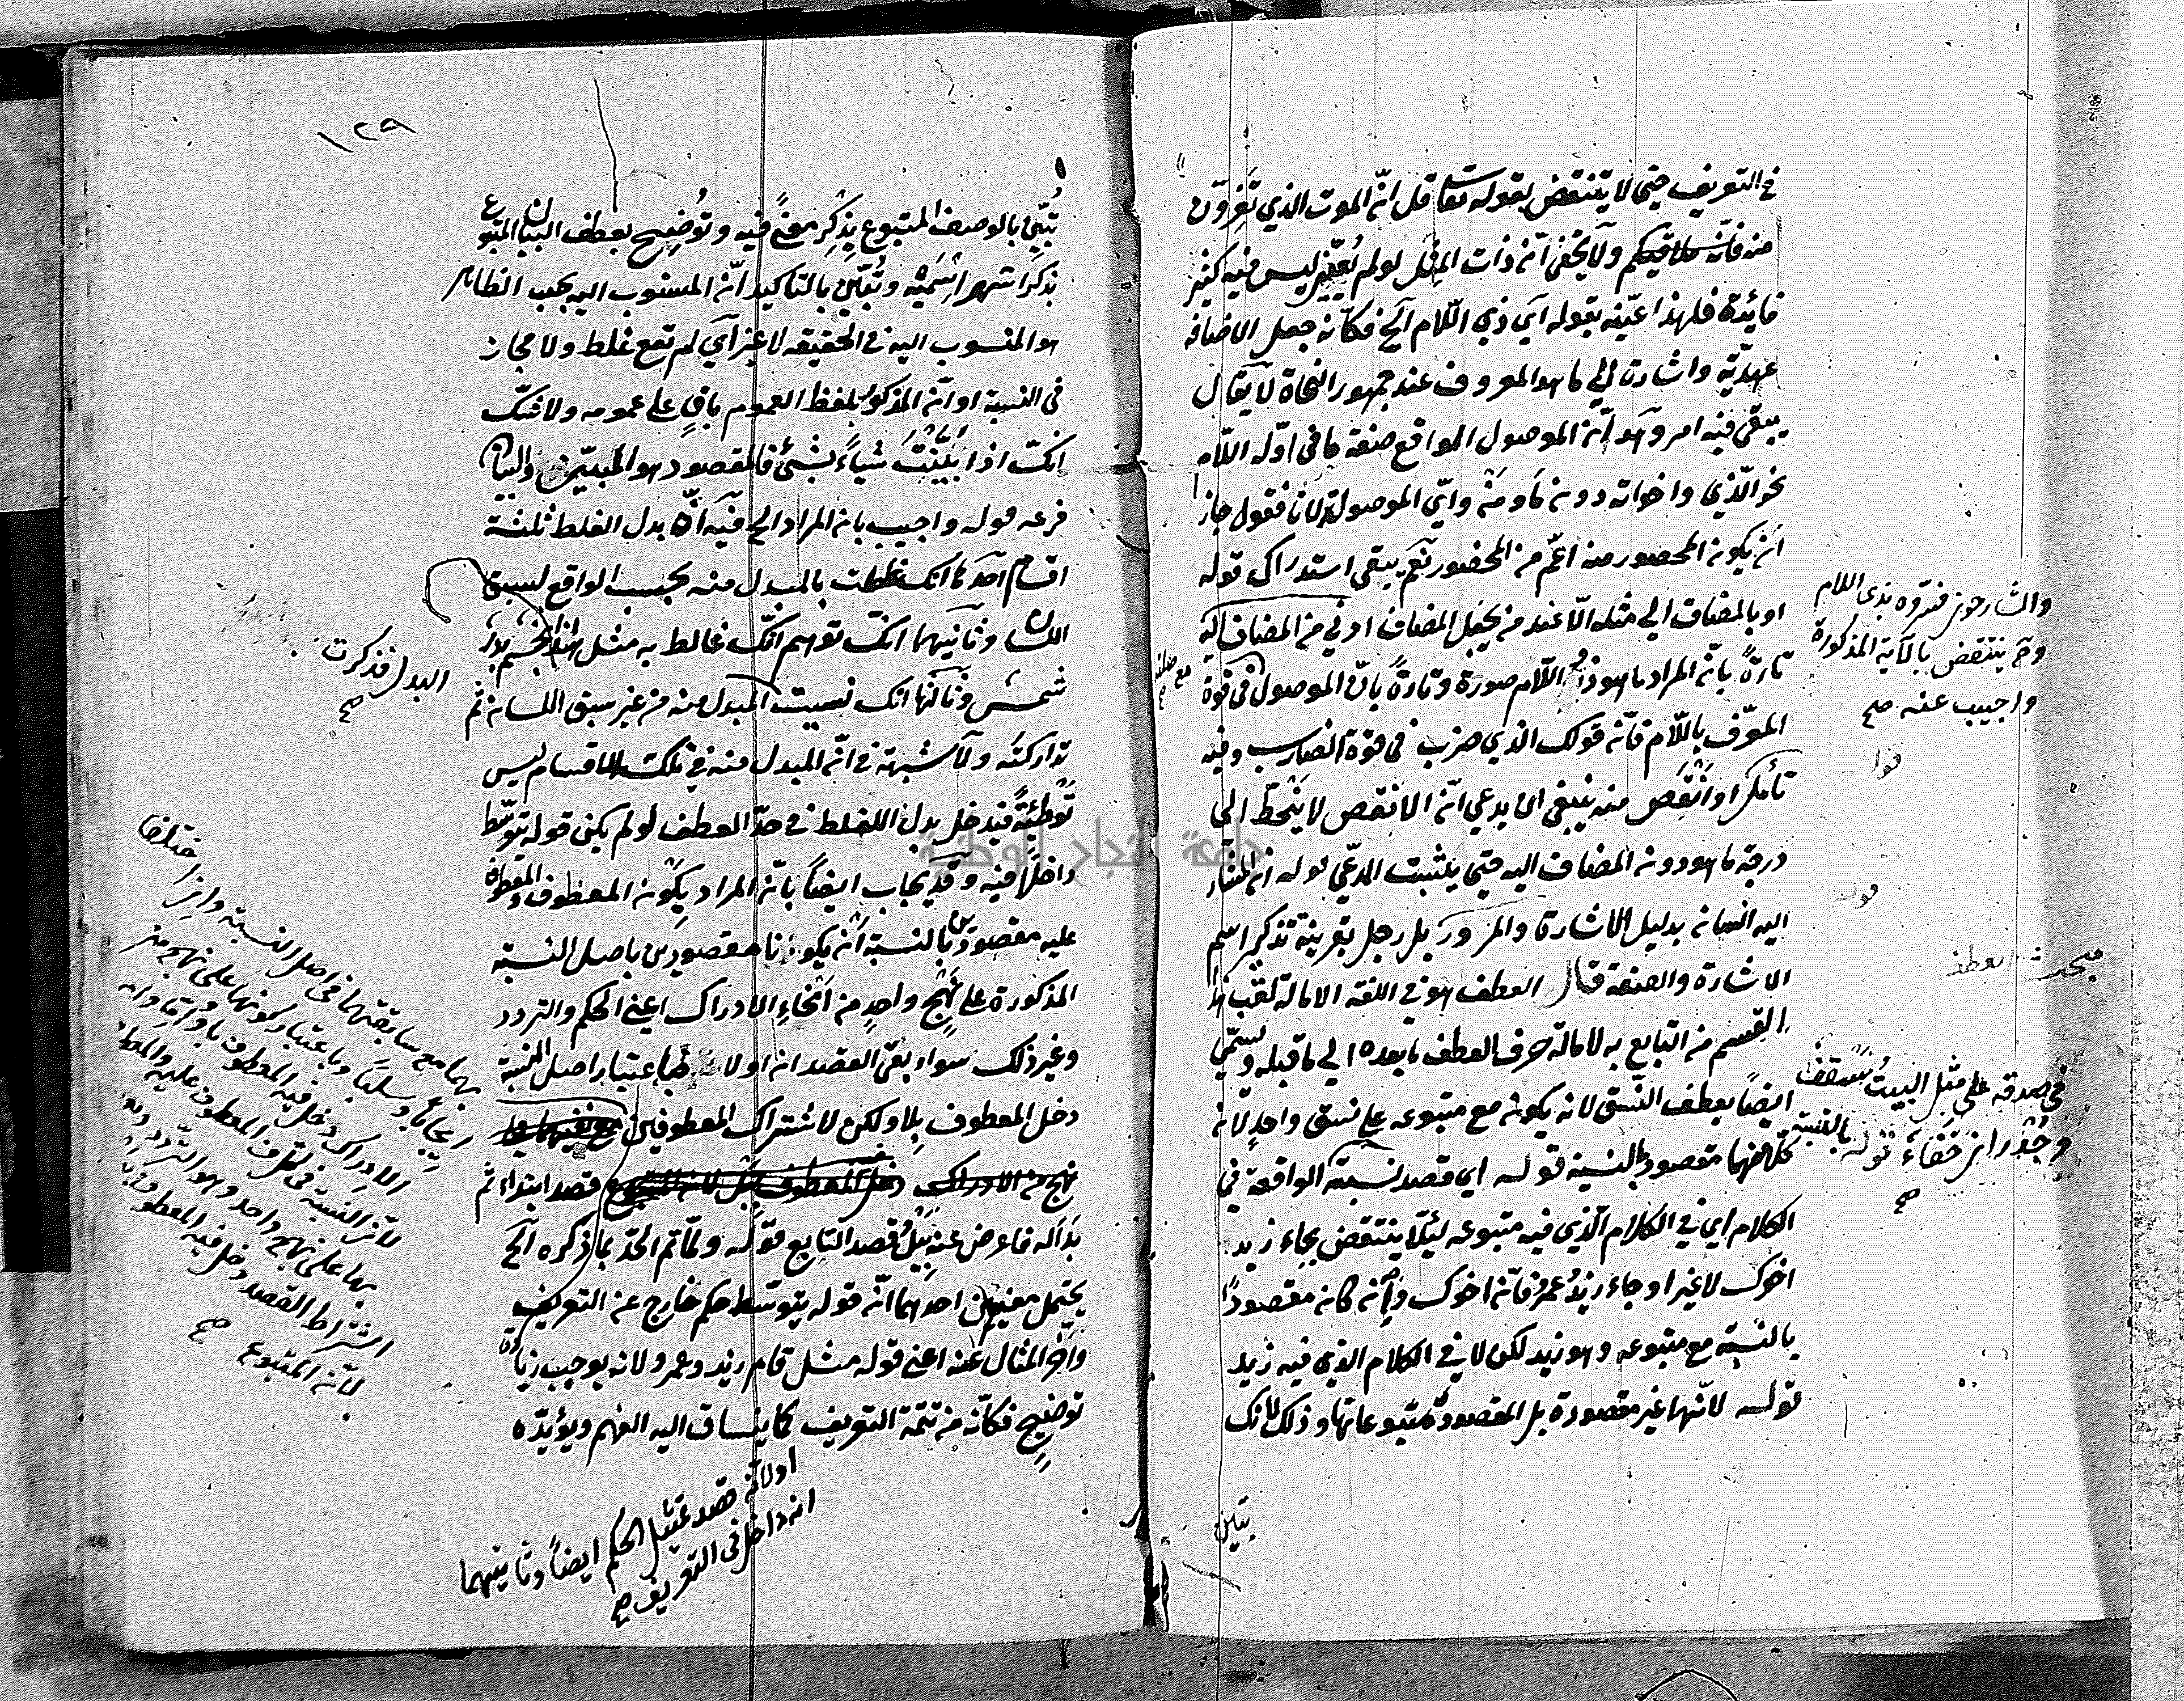 في التعريف حتى لا ينتقض بقوله تعا قل انّ الموت الذي تَفِرّون
منه فانّه ملاقيكم ولا يخفى انّ ذات المثل لو لم يُعيَّن ليس فيه كثير
فائدة فلهذا عيّنه بقوله اي ذي اللّام الخ فكانّه جعل الاضافة
عهديّة واشارة الى ما هو المعروف عند جمهور النحاة لا يقال
يبقى فيه امر وهو انّ الموصول الواقع صفة ما في اوّله اللّام
نحو الّذي واخواته دون ما ومَنْ وايّ الموصولة لانا نقول جاز
ان يكون المحصور منه اعمّ من المحصور نعم يبقى استدراك قوله
او بالمضاف الى مثله الّا عند من يجعل المضاف ادنى من المضاف اليه
تارةً بانّ المراد ما هو ذو اللّام صورة وتارةً بانّ الموصول في قوة
المعرّف باللّام فانّه قولك الذي ضرب في قوة الضارب وفيه
تأمل او انقص منه ينبغي ان يدعي انّ الانقص لا ينحطّ الى
درجة ما هو دون المضاف اليه حتى يثبت المدّعى قوله ان المشار
اليه انسان بدليل الاشارة والمرور بل رجل بقرينة تذكير اسم
الاشارة والصفة قال العطف هو في اللغة الامالة لقّب هذا
القسم من التابع به لامالة حرف العطف ما بعده الى ما قبله ويسمّى
ايضاً بعطف النّسق لانه يكون مع متبوعه على نسق واحد لانّ
كلاهما مقصود بالنسبة قوله اي قصد نسبته الواقعة في
الكلام اي في الكلام الّذي فيه متبوعه لئلّا ينتقض بجاء زيد
اخوك لا غير او جاء زيدُ عمرٌ فانّه اخوك وانْ كان مقصودًا
بالنسبة مع متبوعه وهو زيد لكن لا في الكلام الذي فيه زيد
قوله لانّها غير مقصودة بل المقصودة متبوعاتها وذلك لانك
تبيّن
والشارحون فسّروه بذي اللام
وح ينتقض بالآية المذكورة
واجيب عنه صح
مبحث العطف
في صدقه على مثل البيتُ سَقفٌ
وجُدرانٌ خفاءٌ قوله بالنسبة
صح
١٢٩
تُبيّن بالوصف المتبوع بذِكْرِ معنًى فيه وتُوضِح بعطف البيان المتبوع
بذكر اشهر اسْمَيْه وتُبيّن بالتاكيد انّ المنسوب اليه بحسب الظاهر
هو المنسوب اليه في الحقيقة لا غير اي لم يقع غلط ولا مجاز
في النسبة او انّ المذكور بلفظ العموم باقٍ على عمومه ولا شكّ
انكّ اذا بَيَّنْتَ شياً بشئ فالمقصود هو المبيّن والبيان
فرعه قوله واجيب بان المراد الخ فيه انّ بدل الغلط ثلثة
اقسام احدها انك غلطت بالمبدل منه بحسب الواقع لسبق
اللسان وثانيهما انكّ توهم انكّ غالط به مثل هذا نجم بدر
شمس وثالثها انك نسيت المبدل منه من غير سبق اللسان ثمّ
تداركته ولا شبهة في انّ المبدل منه في تلك الاقسام ليس
تَوْطِئةً فيدخل بدل الغلط في حدّ العطف لو لم يكن قوله يتوسّط
داخلًا فيه وقد يجاب ايضاً بانّ المراد بكون المعطوف والمعطوف
عليه مقصودين بالنسبة أن يكونا مقصودين باصل النسبة
المذكورة على نهج واحدٍ من انحاء الادراك اعني الحكم والتردد
وغير ذلك سواء بقي القصد ان اولا فباعتبار اصل النسبة
دخل المعطوف بلا ولكن لاشتراك المعطوفين
قصد ابتداء ثم
بَدَأ له فاعرض عنه ببل وقصد التابع قوله ولمّا تم الحدّ بما ذكره الخ
يحتمل معنيين احدهما انّ قوله يتوسّط حكم خارج عن التعريف
واخّر المثال عنه اعني قوله مثل قام زيد وعمرو لانه يوجب زيادة
توضيح فكانّه من تتمّة التعريف كما ينساق اليه الفهم ويؤيدّه
البدل فذكرت
صح
بهما مع سابقتهما في اصل النسبة وان اختلفا
ايجاباً وسلبًا وباعتبار كونها على نهج من
الادراك دخل فيه المعطوف باو وامّا وام
لانّ النسبة في طرف المعطوف عليه والمعطوف
بها على نهج واحد وهو التّردد
اشتراط القصد دخل فيه المعطوف
لانّ المتبوع صح
اولانّه قصد تمثيل الحكم ايضاً وثانيهما
انه داخل في التعريف صح
جامعة النجاح الوطنية